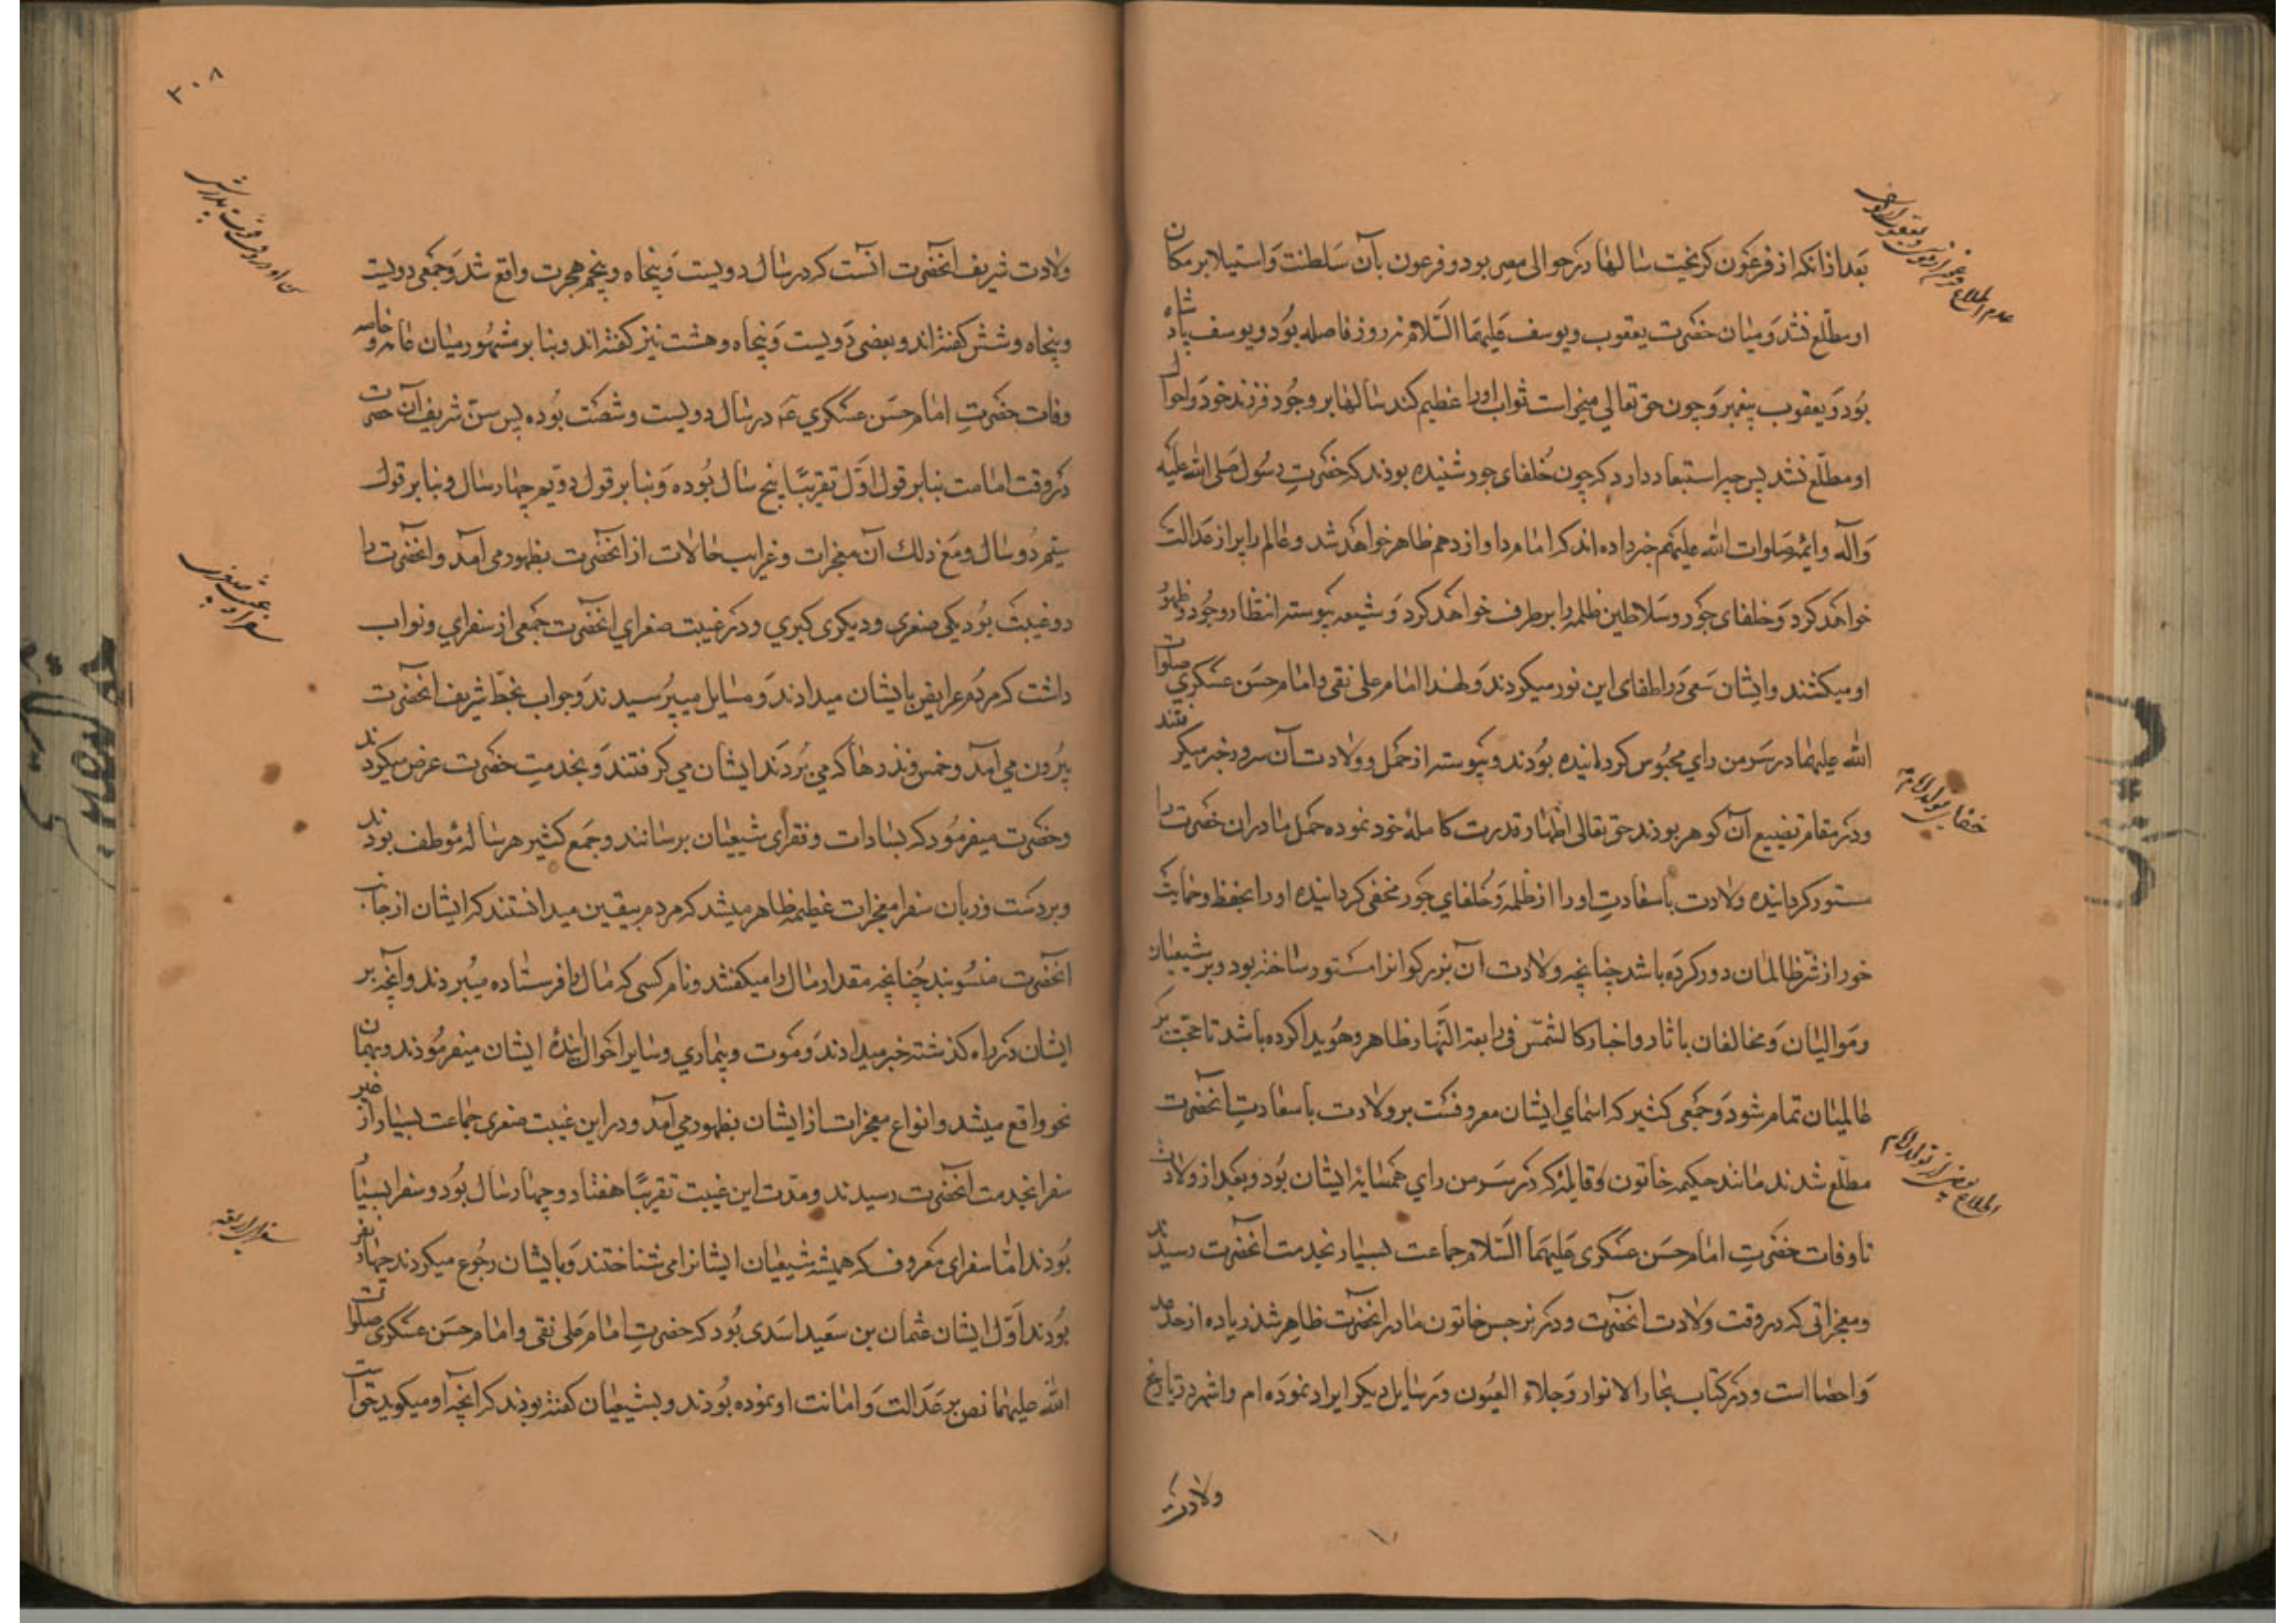 بعد ازانکه از فرعون کریخت سالها در حوالی مصر بود و فرعون بآن سلطنت و استیلا بر مکان
او مطلع نشد و میان حضرت یعقوب و یوسف علیهما السلام نه روز فاصله بود و یوسف پادشاه
بود و یعقوب پیغمبر و چون حق تعالی میخواست ثواب اورا عظیم کند سالها بر وجود فرزند خود و احوال
او مطلع نشد پس چه استبعاد دارد که چون خلفای جور شنیده بودند که حضرت رسول صلی الله علیه
و آله و ایمه صلوات الله علیهم خبر داده اند که امام دوازدهم ظاهر خواهد شد و عالم را پر از عدالت
خواهد کرد و خلفای جور و سلاطین ظلمه را برطرف خواهد کرد و شیعه پیوسته انتظار وجود و ظهور
او میکشند و ایشان سعی در اطفای این نور میکردند و لهذا امام علی نقی و امام حسن عسکری صلوات
الله علیهما در سر من رای محبوس کردانیده بودند و پیوسته از حمل و ولادت آن سرور خبر میکرفتند
و در مقام تضییع آن کوهر بودند حق تعالی اظهار قدرت کامله خود نموده حمل مادر ان حضرت را
مستور کردانیده ولادت با سعادت اورا از ظلمه و خلفای جور مخفی کردانیده اورا بحفظ و حمایت
خود از شر ظالمان دور کرده باشد چنانچه ولادت آن بزرکوار انرا مستور ساخته بود و بر شیعیان
و موالیان و مخالفان باثار و اخبار کالشمس فی رابعة النهار ظاهر و هویدا کرده باشد تا حجت بر
عالمیان تمام شود و جمعی کثیر که اسمای ایشان معروفست بر ولادت با سعادت انحضرت
مطلع شدند مانند حکیمه خاتون و قابله که در سر من رای همسایه ایشان بود و بعد از ولادت
تا وفات حضرت امام حسن عسکری علیهما السلام جماعت بسیار بخدمت انحضرت رسیدند
و معجزاتی که در وقت ولادت انحضرت و در نرجس خاتون مادر انحضرت ظاهر شد زیاده از حد
و احصا است و در کتاب بحار الانوار و جلاء العیون و رسایل دیکر ایراد نموده ام و اشهر در تاریخ
ولادت
۳۰۸
ولادت شریف انحضرت انست که در سال دویست و پنجاه و پنجم هجرت واقع شد و جمعی دویست
و پنجاه و شش کفته اند و بعضی دویست و پنجاه و هشت نیز کفته اند و بنا بر مشهور میان عامه و خاصه
وفات حضرت امام حسن عسکری ع در سال دویست و شصت بوده پس سن شریف آن حضرت
در وقت امامت بنا بر قول اول تقریبا پنج سال بوده و بنا بر قول دویم چهار سال و بنا بر قول
سیم دو سال و مع ذلک آن معجزات و غرایب حالات از انحضرت بظهور می آمد و انحضرت را
دو غیبت بود یکی صغری و دیکری کبری و در غیبت صغرای انحضرت جمعی از سفرای و نواب
داشت که مردم عرایض بایشان میدادند و مسایل میپرسیدند و جواب بخط شریف انحضرت
بیرون می آمد و خمس و نذرها که می بردند ایشان می کرفتند و بخدمت حضرت عرض میکردند
و حضرت میفرمود که بسادات و فقرای شیعیان برسانند و جمع کثیر هر ساله موظف بودند
و بر دست و زبان سفرا معجزات عظیمه ظاهر میشد که مردم بیقین میدانستند که ایشان از جانب
انحضرت منسوبند چنانچه مقدار مال را میکفتند و نام کسی که مال را فرستاده میبردند و آنچه بر
ایشان در راه کذشته خبر میدادند و موت و بیماری و سایر احوال ایندهٔ ایشان میفرمودند و بهمان
نحو واقع میشد و انواع معجزات از ایشان بظهور می آمد و در این غیبت صغری جماعت بسیار از غیر
سفرا بخدمت انحضرت رسیدند و مدت این غیبت تقریبا هفتاد و چهار سال بود و سفرا بسیار
بودند اما سفرای معروف که همیشه شیعیان ایشانرا می شناختند و بایشان رجوع میکردند چهار نفر
بودند اول ایشان عثمان بن سعید اسدی بود که حضرت امام علی نقی و امام حسن عسکری صلوات
الله علیهما نص بر عدالت و امانت او نموده بودند و بشیعیان کفته بودند که انچه او میکوید حق است
سفرای اربعه